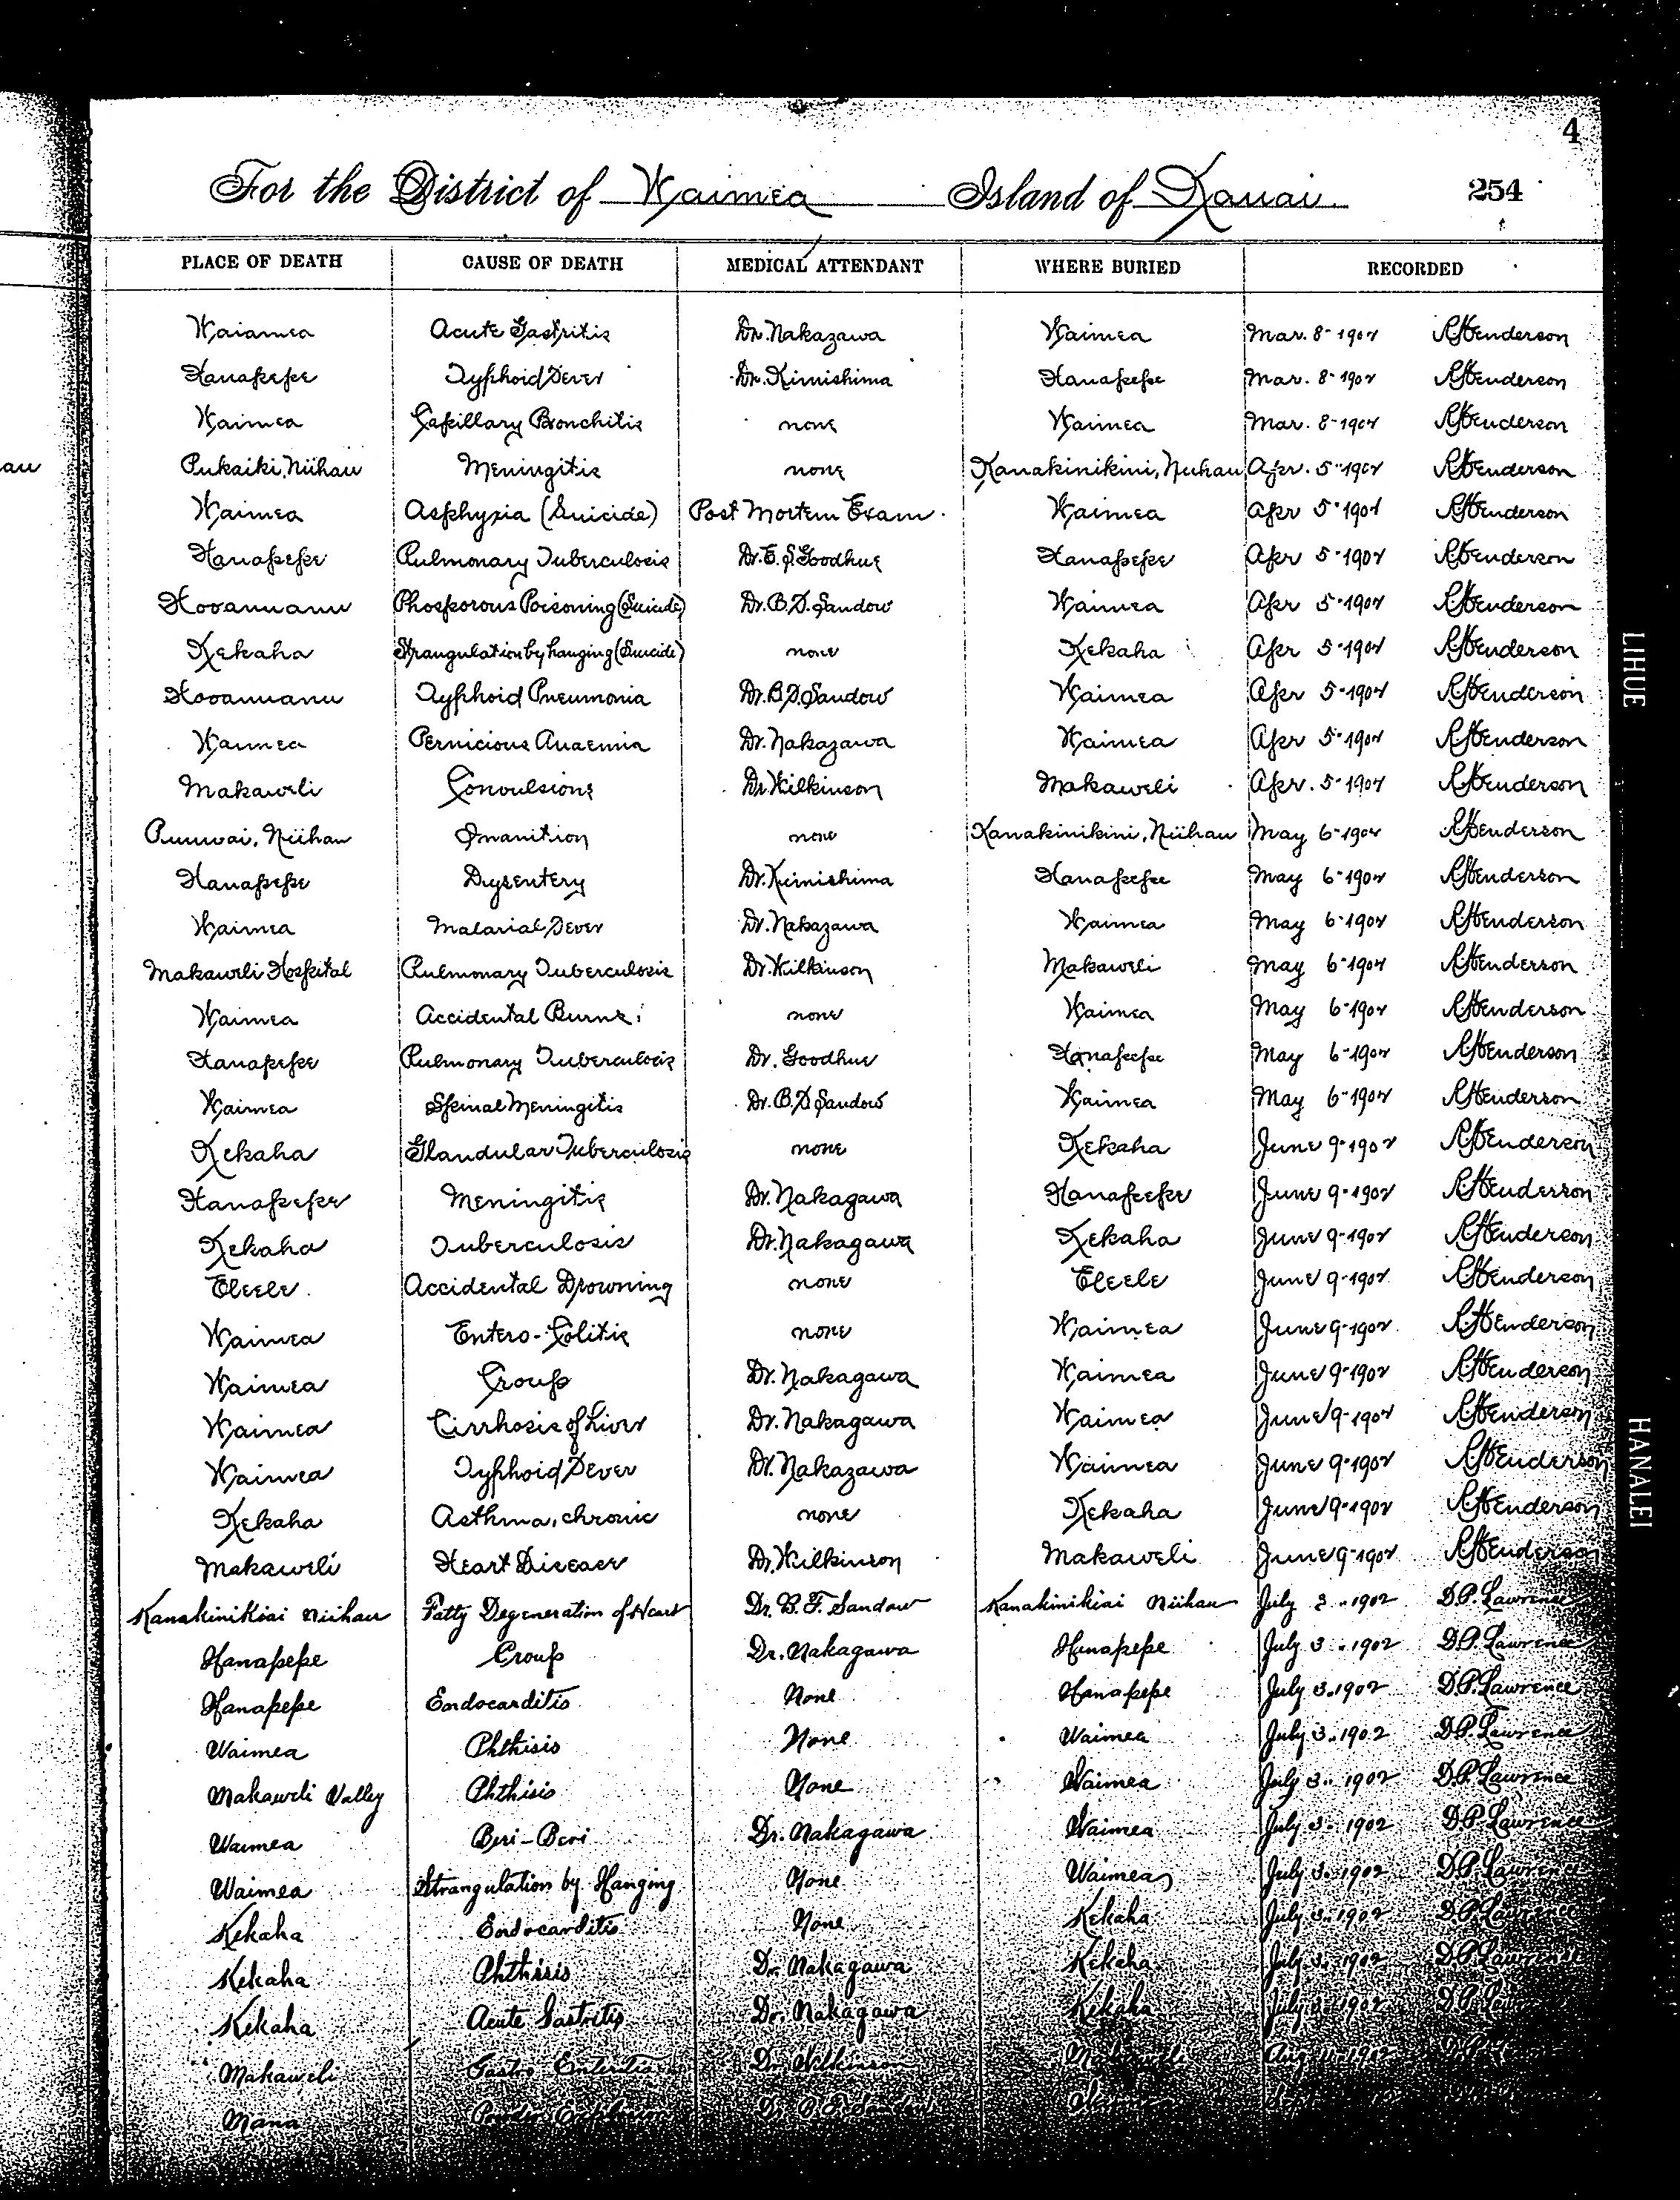 4
For the District of Waimea Island of Kauai. 254
PLACE OF DEATH CAUSE OF DEATH MEDICAL ATTENDANT WHERE BURIED RECORDED
Waiamea Acute Gastritis Dr. Nakazawa Waimea Mar. 8-1902 R.Henderson
Hanapepe Typhoid Fever Dr. Kimishima Hanapepe Mar. 8-1902 R.Henderson
Waimea Capillary Bronchitis none Waimea Mar. 8-1902 R.Henderson
au Pukaiki, Niihau Meningitis none Kanakinikini, Niihau Apr. 5-1902 R.Henderson
Waimea Asphyxia (Suicide) Post Mortem Exam. Waimea Apr 5-1902 R.Henderson
Hanapepe Pulmonary Tuberculosis Dr. E. S. Goodhue Hanapepe Apr 5-1902 R.Henderson
Hooanuanu Phosporous Poisoning (Suicide) Dr. B. F. Sandow Waimea Apr 5-1902 R.Henderson
Kekaha Strangulation by hanging (Suicide) none Kekaha Apr 5-1902 R.Henderson
Hooanuanu Typhoid Pneumonia Dr. B. F. Sandow Waimea Apr 5-1902 R.Henderson
Waimea Pernicious Anaemia Dr. Nakazawa Waimea Apr 5-1902 R.Henderson
Makaweli Convulsions Dr. Wilkinson Makaweli Apr. 5-1902 R.Henderson
Puuwai, Niihau Inanition none Kanakinikini, Niihau May 6-1902 R.Henderson
Hanapepe Dysentery Dr. Kimishima Hanapepe May 6-1902 R.Henderson
Waimea Malarial Fever Dr. Nakazawa Waimea May 6-1902 R.Henderson
Makaweli Hospital Pulmonary Tuberculosis Dr. Wilkinson Makaweli May 6-1902 R.Henderson
Waimea Accidental Burns. none Waimea May 6-1902 R.Henderson
Hanapepe Pulmonary Tuberculosis Dr. Goodhue Hanapepe May 6-1902 R.Henderson
Waimea Spinal Meningitis Dr. B. F. Sandow Waimea May 6-1902 R.Henderson
Kekaha Glandular Tuberculosis none Kekaha June 9-1902 R.Henderson
Hanapepe Meningitis Dr. Nakagawa Hanapepe June 9-1902 R.Henderson
Kekaha Tuberculosis Dr. Nakagawa Kekaha June 9-1902 R.Henderson
Eleele. Accidental Drowning none Eleele June 9-1902 R.Henderson
Waimea Entero-Colitis none Waimea June 9-1902 R.Henderson
Waimea Croup Dr. Nakagawa Waimea June 9-1902 R.Henderson
Waimea Cirrhosis of Liver Dr. Nakagawa Waimea June 9-1902 R.Henderson
Waimea Typhoid Fever Dr. Nakazawa Waimea June 9-1902 R.Henderson
Kekaha Asthma, chronic none Kekaha June 9-1902 R.Henderson
Makaweli Heart Disease Dr. Wilkinson Makaweli June 9-1902 R.Henderson
Kanakinikiai Niihau Fatty Degeneration of Heart Dr. B. F. Sandow Kanakinikiai Niihau July 3.. 1902 D.P. Lawrence
Hanapepe Croup Dr. Nakagawa Hanapepe July 3.. 1902 D.P. Lawrence
Hanapepe Endocarditis None Hanapepe July 3. 1902 D.P. Lawrence
Waimea Phthisis None Waimea July 3.. 1902 D.P. Lawrence
Makaweli Valley Phthisis None Waimea July 3.. 1902 D.P. Lawrence
Waimea Beri-Beri Dr. Nakagawa Waimea July 3. 1902 D.P. Lawrence
Waimea Strangulation by Hanging None Waimea July 3. 1902 D.P. Lawrence
Kekaha Endocarditis None Kekaha July 3. 1902 D.P. Lawrence
Kekaha Phthisis Dr. Nakagawa Kekaha July 3. 1902 D.P. Lawrence
Kekaha Acute Gastritis Dr. Nakagawa Kekaha July 3. 1902 D.P.
Makaweli Gastro Enteritis Dr. Wilkinson Makaweli Aug 1902
Mana Powder Explosion Dr. B. F. Sandow Waimea Sept
LIHUE
HANALEI